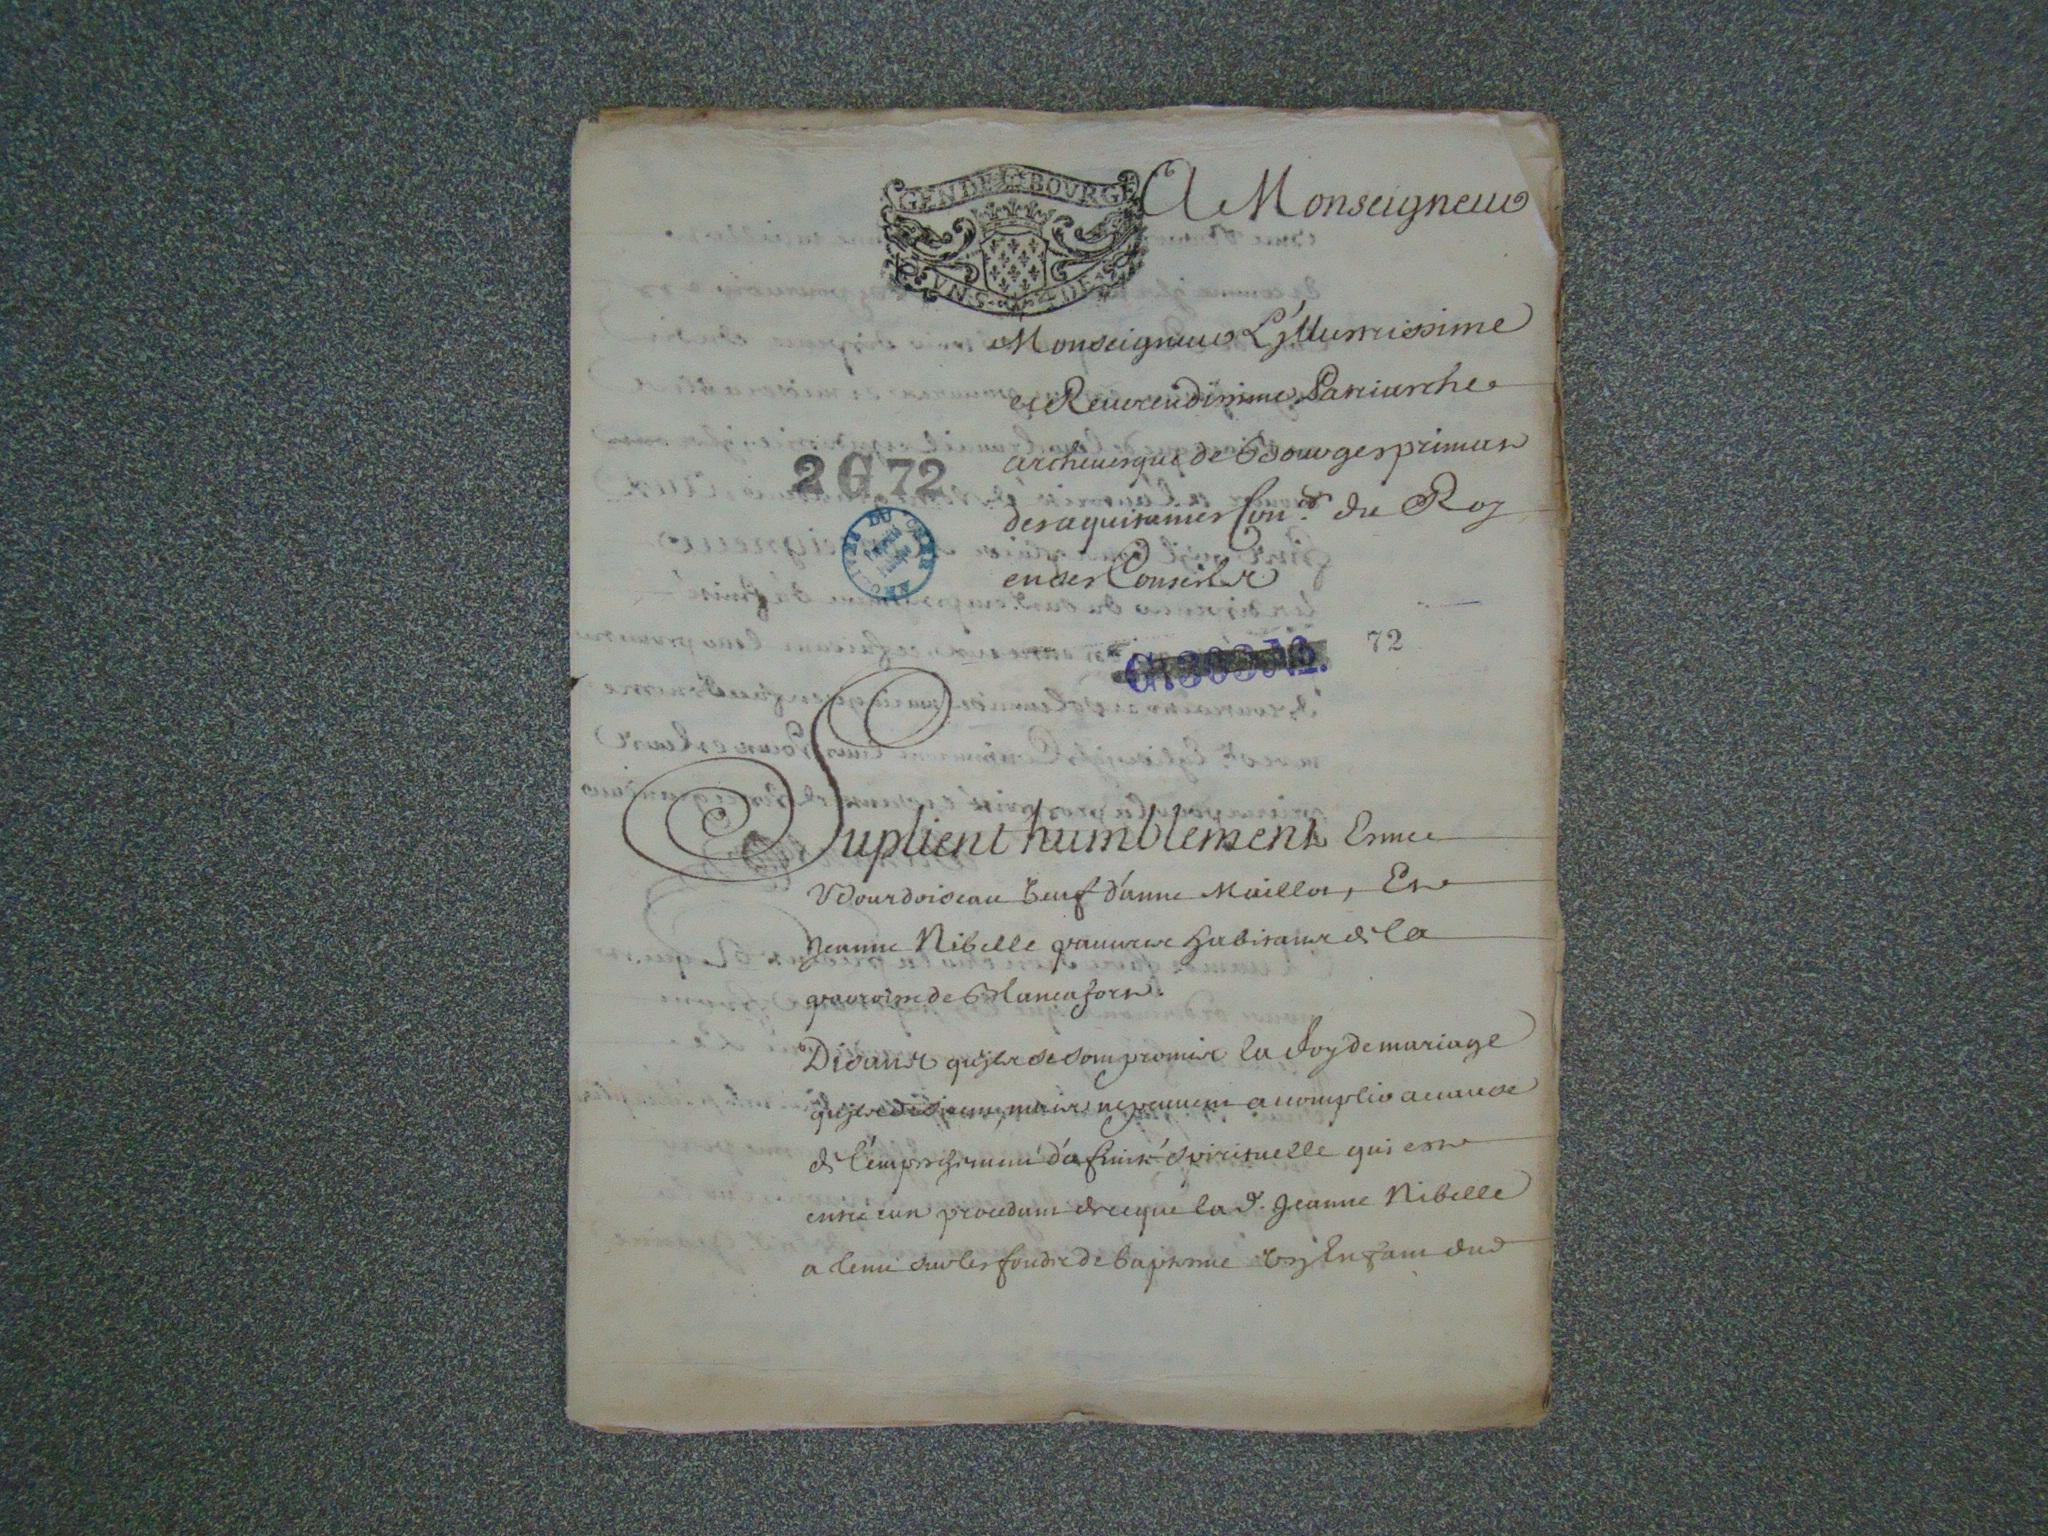 GEN DE BOVRG
VN S
A Monseigneur
Monseigneur L'jllustrissime
et Reverendissime Patriarche
archevesque de Bourges primat
des aquitaines Con.er du Roy
en ses Conseils
2 G 72
ARCHIVES DU CHER
G. 303
72
Suplient humblement Esme
Bourdoiseau veuf d'anne Maillot, Et
Jeanne Nibelle pauvres habitans de la
parroisse de Blancafort.
Disant qu'jls se sont promis la foy de mariage
qu'jls desirent, mais ne peuvent acomplir a cause
de l'empeschement d'afinité spirituelle qui est
entre eux procedant de ce que la d. Jeanne Nibelle
a tenu sur les fonds de baptesme un Enfant dud